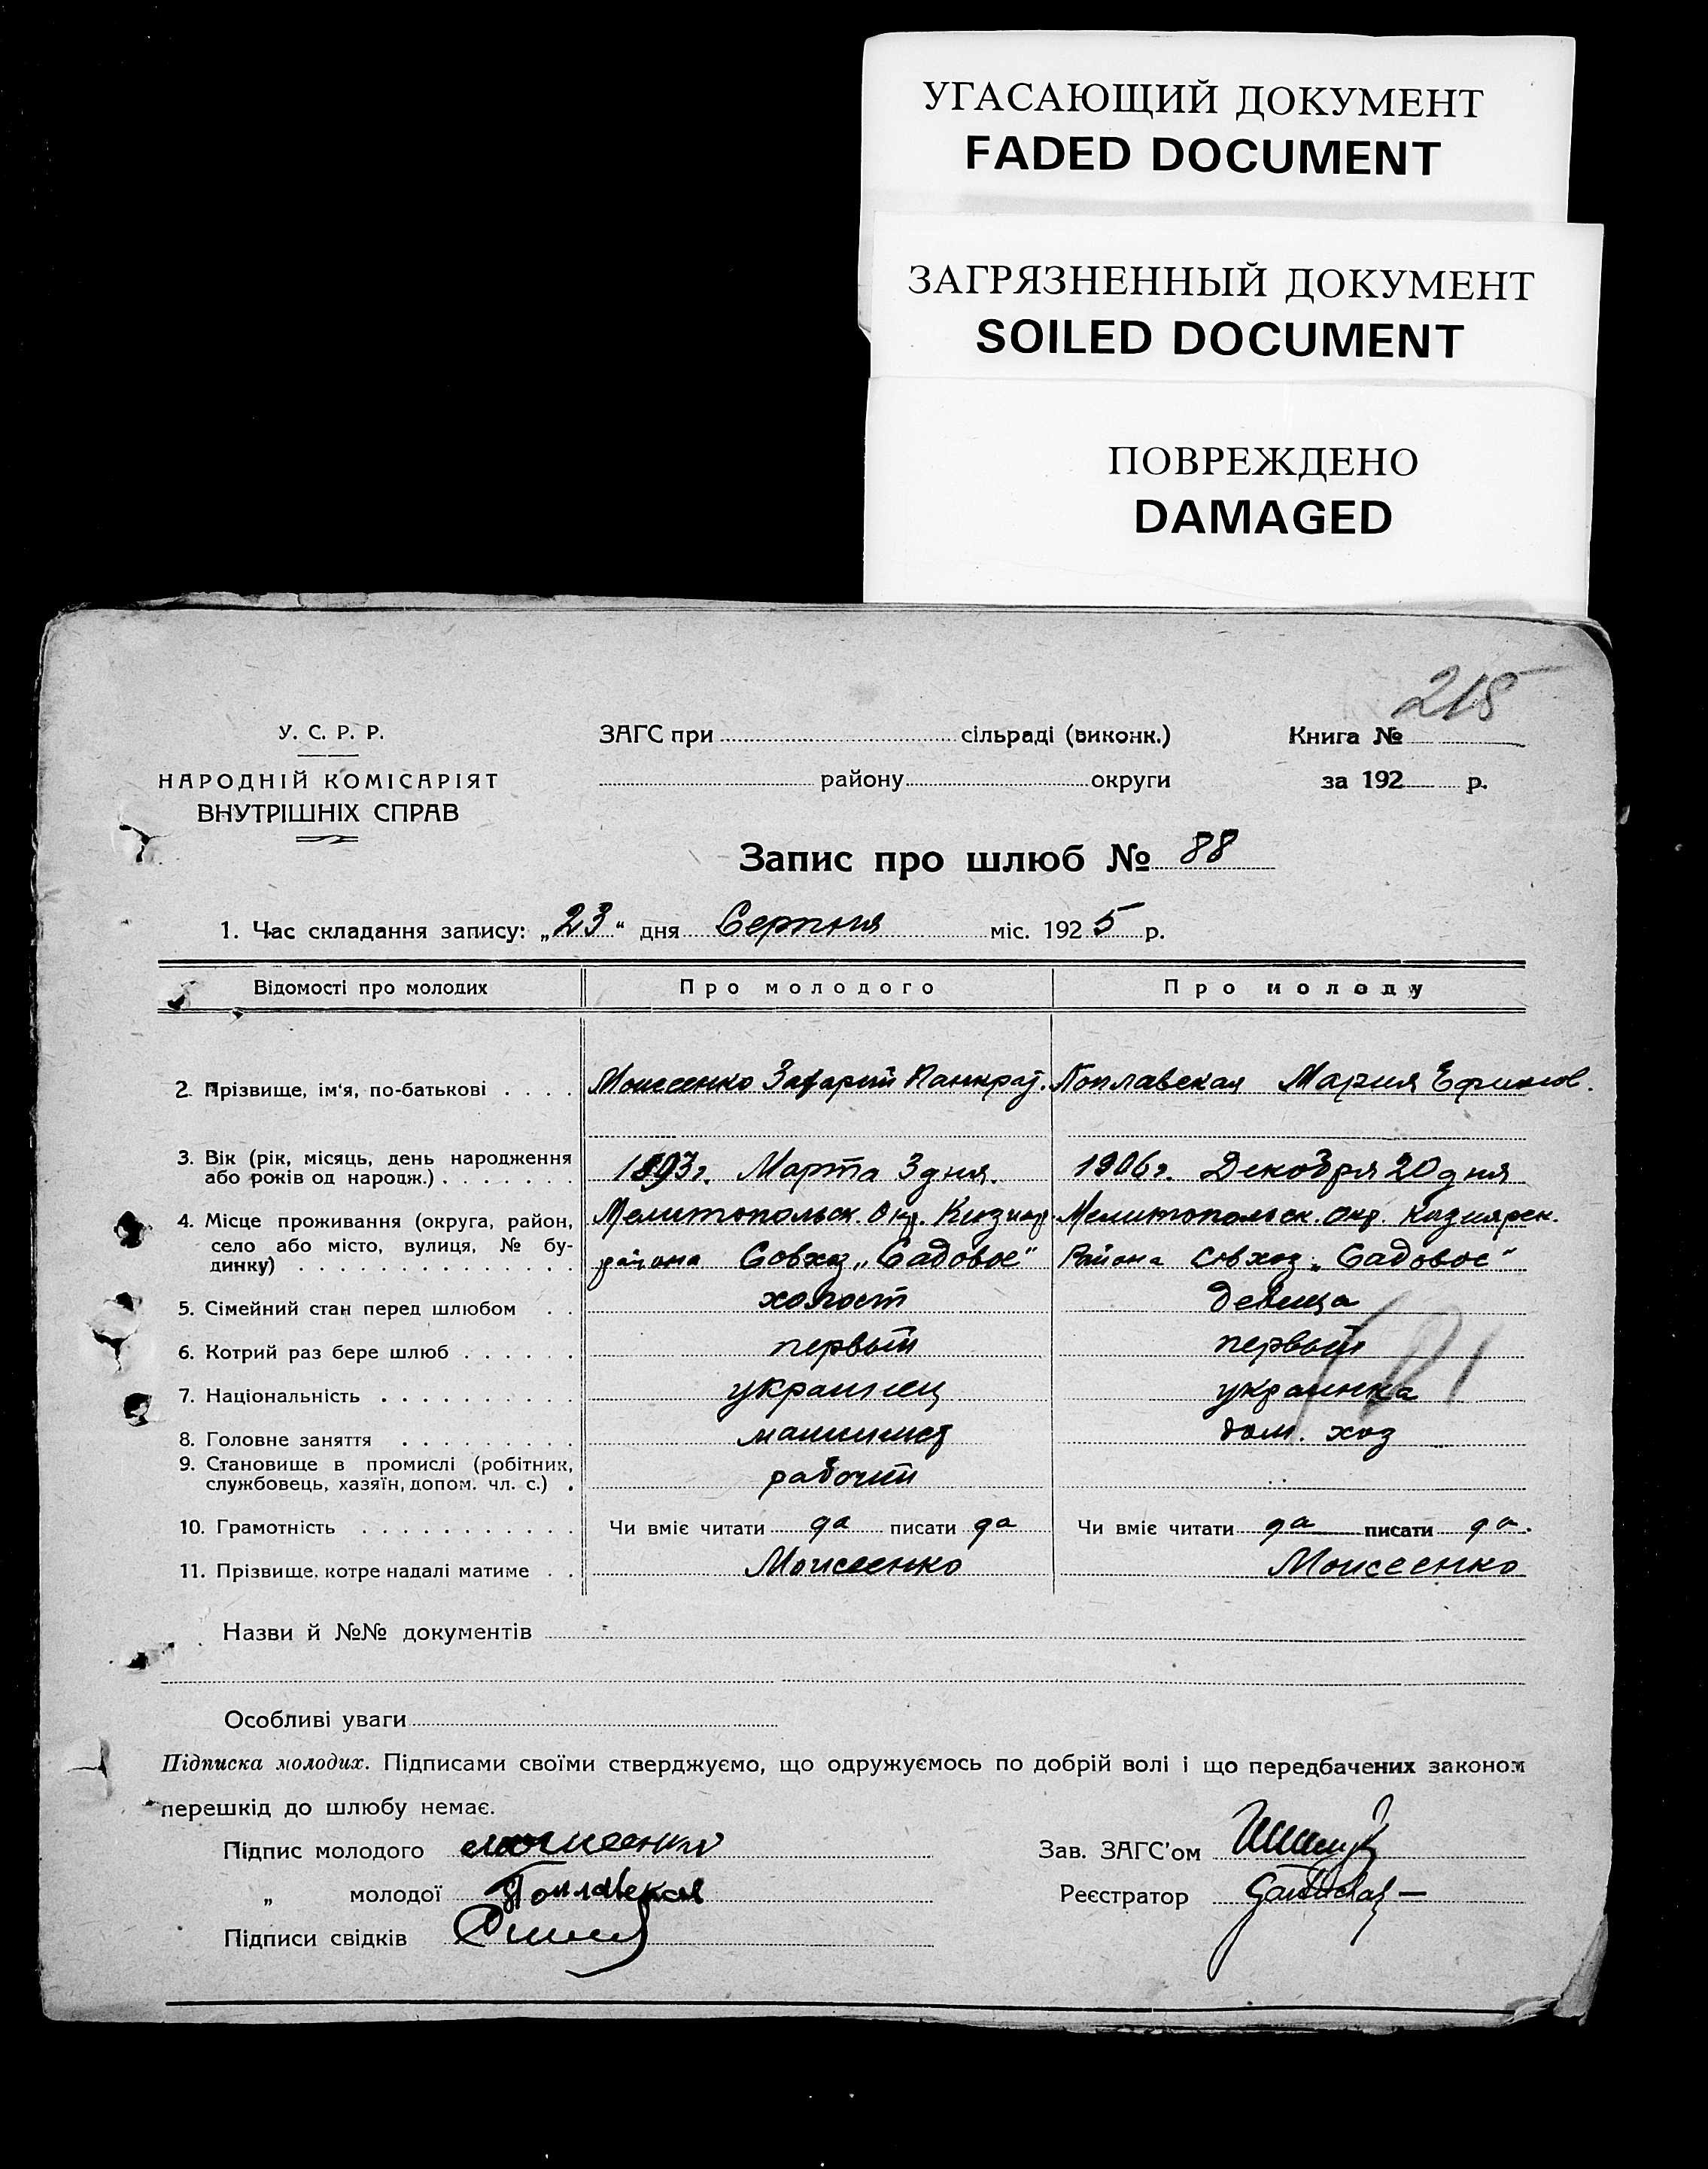 УГАСАЮЩИЙ ДОКУМЕНТ
FADED DOCUMENT
ЗАГРЯЗНЕННЫЙ ДОКУМЕНТ
SOILED DOCUMENT
ПОВРЕЖДЕНО
DAMAGED
215
У. С. Р. Р.
НАРОДНІЙ КОМІСАРІЯТ
ВНУТРІШНІХ СПРАВ
ЗАГС при сільраді (виконк.)
району округи
Книга №
за 192 р.
Запис про шлюб № 88
1. Час складання запису: „23“ дня Серпня міс. 1925 р.
Відомості про молодих Про молодого Про молоду
2. Прізвище, ім'я, по-батькові . . . . Моисеенко Захарий Панкрат. Поплавская Мария Ефимов.
3. Вік (рік, місяць, день народження
або років од народж.) . . . . . . . 1893г. Марта 3 дня. 1906г. Декабря 20 дня
4. Місце проживання (округа, район, Мелитопольск. Окр. Кизияр. Мелитопольск. окр. Кизиярск.
село або місто, вулиця, № бу-
динку) . . . . . . . . . . . . . . района Совхоз „Садовое“ Района совхоз „Садовое“
5. Сімейний стан перед шлюбом . . холост девица
6. Котрий раз бере шлюб . . . . . . первый первый
7. Національність . . . . . . . . . . украинец украинка
8. Головне заняття . . . . . . . . . машинист дом. хоз
9. Становище в промислі (робітник,
службовець, хазяїн, допом. чл. с.) . рабочий
10. Грамотність . . . . . . . . . . . Чи вміє читати да писати да Чи вміє читати да писати да.
11. Прізвище, котре надалі матиме . . Моисеенко Моисеенко
Назви й №№ документів
Особливі уваги
Підписка молодих. Підписами своїми стверджуємо, що одружуємось по добрій волі і що передбачених законом
перешкід до шлюбу немає.
Підпис молодого Моисеенко Зав. ЗАГС'ом
„ молодої Поплавская Реєстратор
Підписи свідків